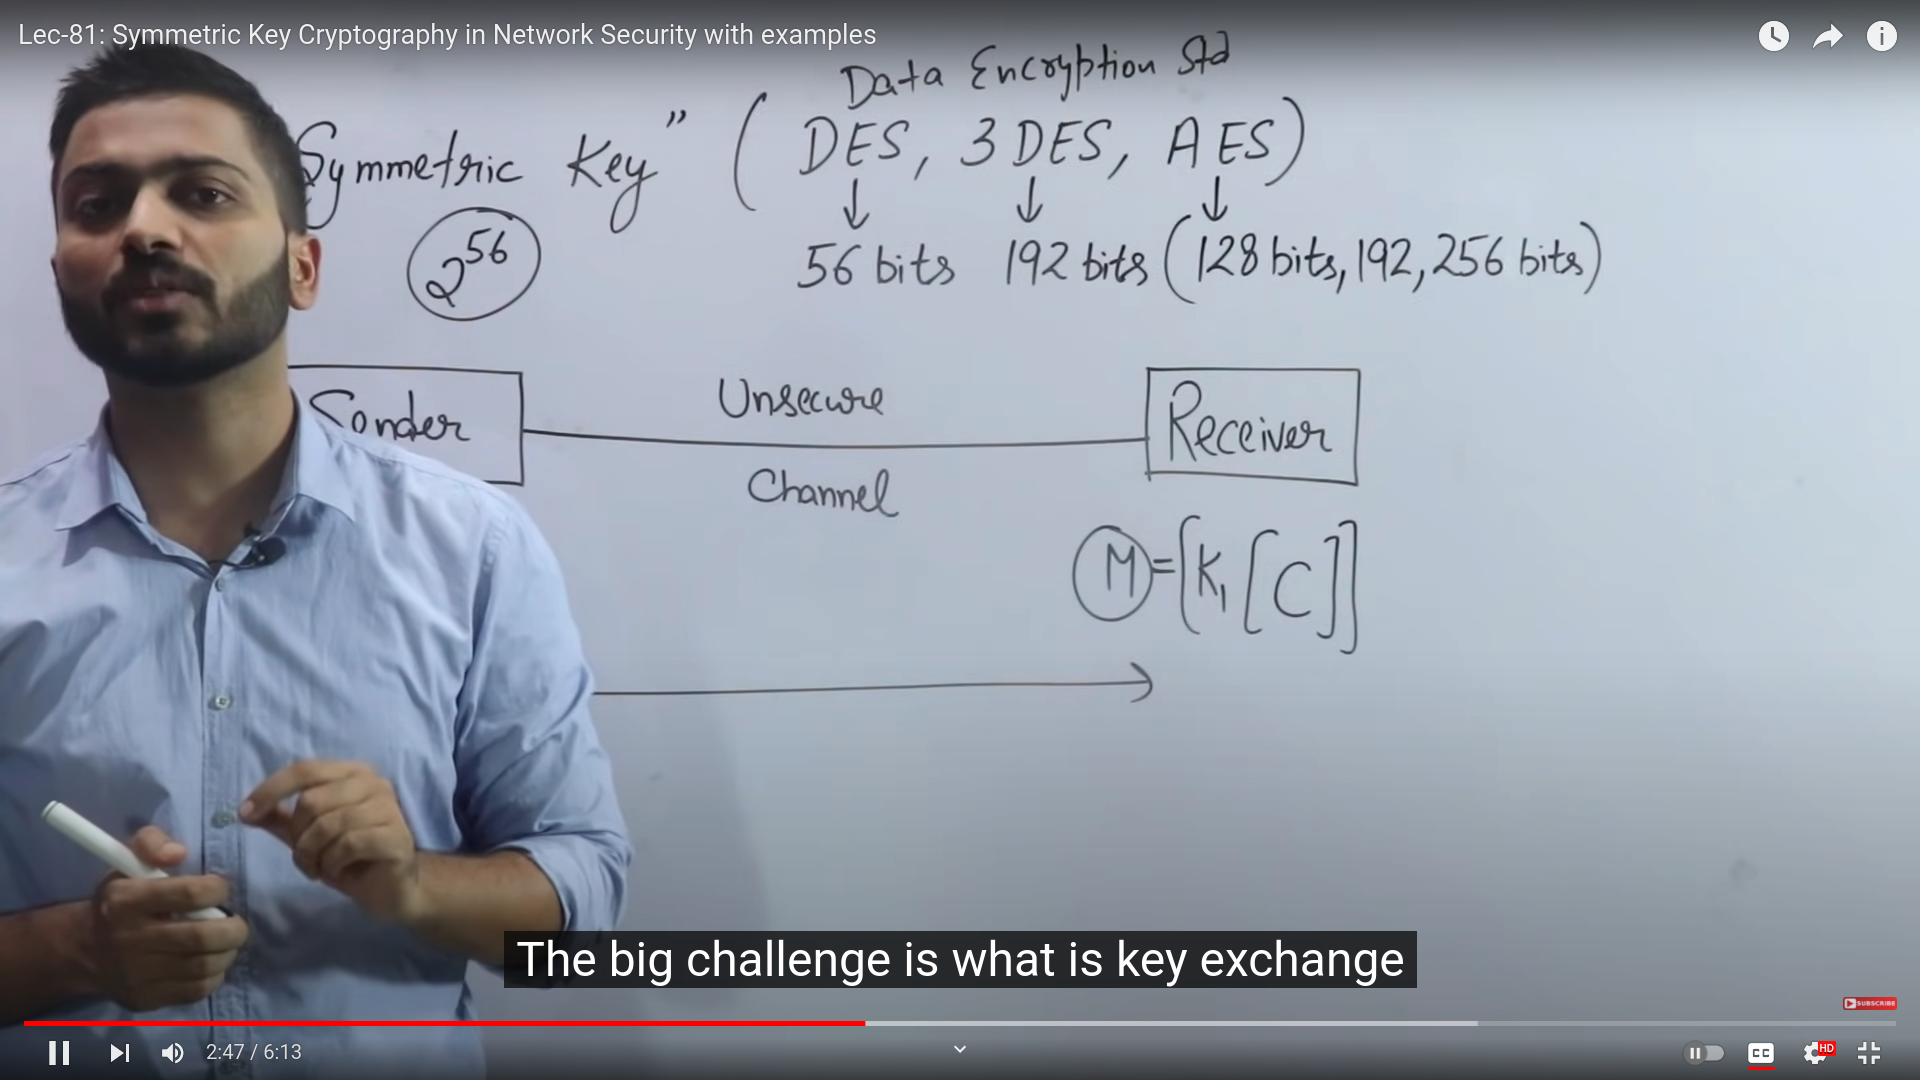 Lec-81: Symmetric Key Cryptography in Network Security with examples
Data Encryption Std
Symmetric Key" ( DES, 3DES, AES)
↓ ↓ ↓
2^56
56 bits 192 bits (128 bits, 192, 256 bits)
Sender
Unsecure
Channel
Receiver
M=[K₁[C]]
The big challenge is what is key exchange
SUBSCRIBE
2:47 / 6:13
CC
HD